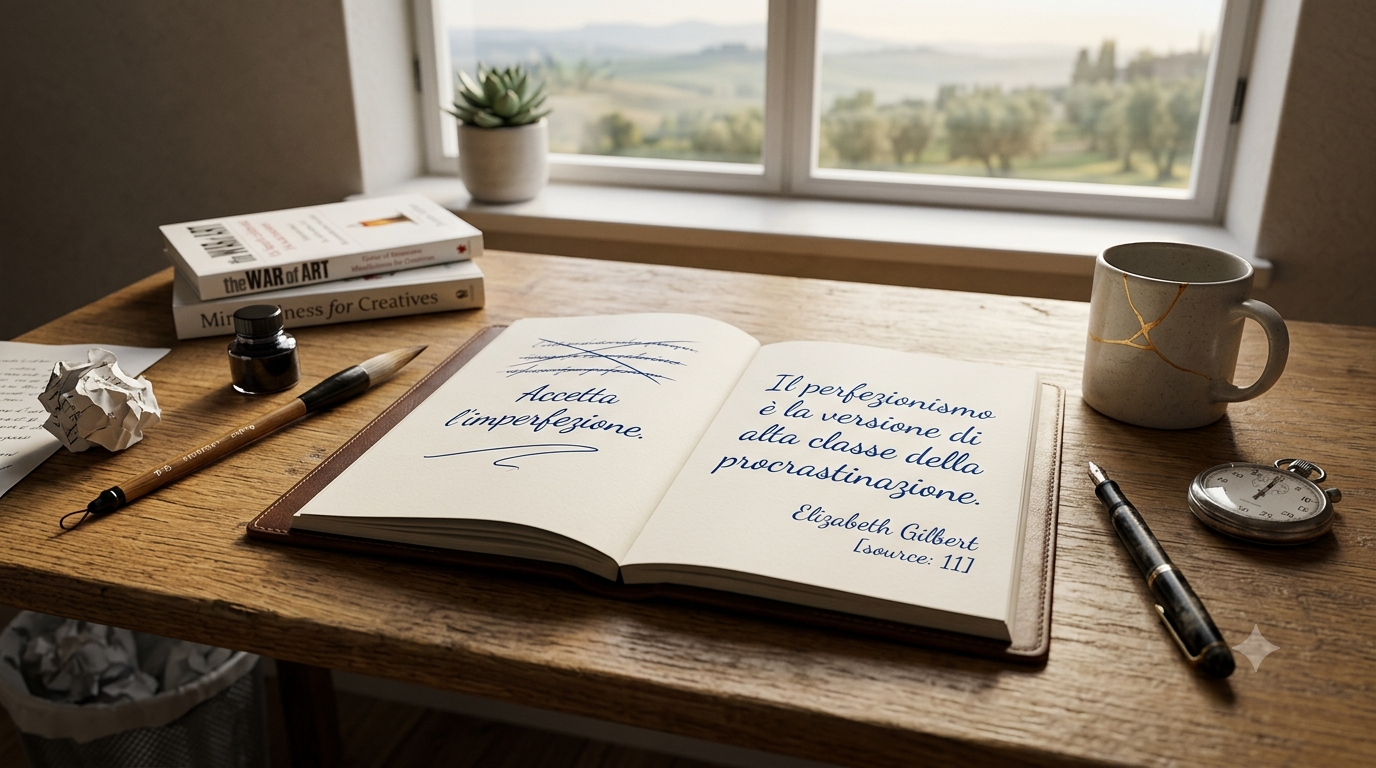 the WAR of ART
for Creatives
Accetta
l'imperfezione.
Il perfezionismo
è la versione di
alta classe della
procrastinazione.
Elizabeth Gilbert
[source: 11]